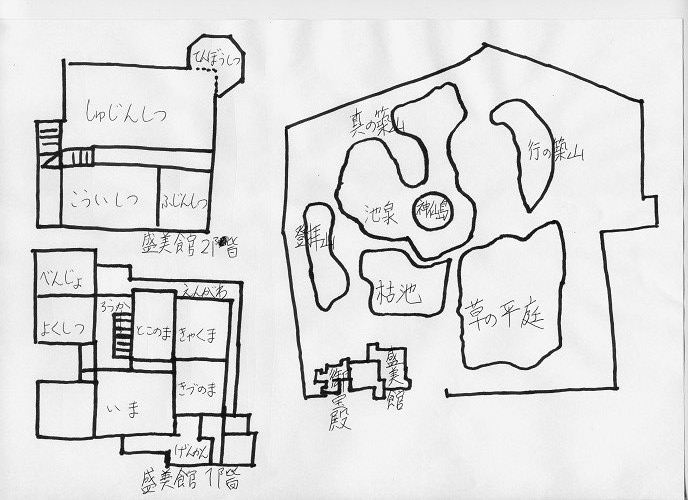 てんぼうしつ
しゅじんしつ
こういしつ
ふじんしつ
盛美館2階
べんじょ
ろうか
えんがわ
よくしつ
とこのま
きゃくま
きづのま
いま
げんかん
盛美館1階
真の築山
行の築山
池泉
神仙島
登拝山
枯池
草の平庭
御宝殿
盛美館